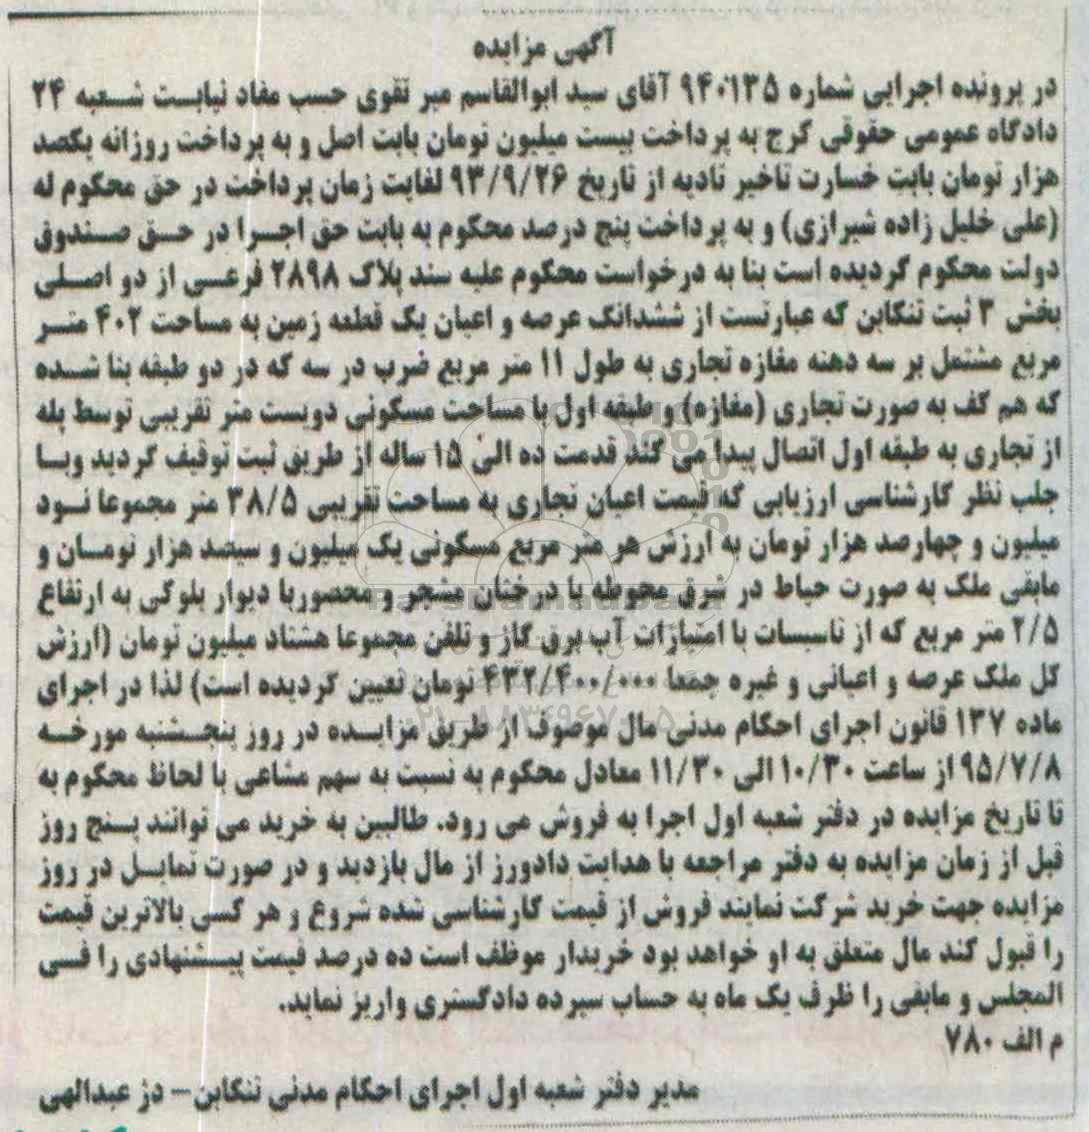 آگهی مزایده
در پرونده اجرایی شماره ۹۴۰۱۳۵ آقای سید ابوالقاسم میر تقوی حسب مفاد نیابت شعبه ۲۴
دادگاه عمومی حقوقی کرج به پرداخت بیست میلیون تومان بابت اصل و به پرداخت روزانه یکصد
هزار تومان بابت خسارت تاخیر تادیه از تاریخ ۹۳/۹/۲۶ لغایت زمان پرداخت در حق محکوم له
(علی خلیل زاده شیرازی) و به پرداخت پنج درصد محکوم به بابت حق اجرا در حق صندوق
دولت محکوم گردیده است بنا به درخواست محکوم علیه سند پلاک ۲۸۹۸ فرعی از دو اصلی
بخش ۳ ثبت تنکابن که عبارتست از ششدانگ عرصه و اعیان یک قطعه زمین به مساحت ۴۰۲ متر
مربع مشتمل بر سه دهنه مغازه تجاری به طول ۱۱ متر مربع ضرب در سه که در دو طبقه بنا شده
که هم کف به صورت تجاری (مغازه) و طبقه اول با مساحت مسکونی دویست متر تقریبی توسط پله
از تجاری به طبقه اول اتصال پیدا می کند قدمت ده الی ۱۵ ساله از طریق ثبت توقیف گردید وبا
جلب نظر کارشناسی ارزیابی که قیمت اعیان تجاری به مساحت تقریبی ۳۸/۵ متر مجموعا نود
میلیون و چهارصد هزار تومان به ارزش هر متر مربع مسکونی یک میلیون و سیصد هزار تومان و
مابقی ملک به صورت حیاط در شرق محوطه با درختان مشجر و محصوربا دیوار بلوکی به ارتفاع
۲/۵ متر مربع که از تاسیسات با امتیازات آب برق گاز و تلفن مجموعا هشتاد میلیون تومان (ارزش
کل ملک عرصه و اعیانی و غیره جمعا ۴۳۲/۴۰۰/۰۰۰ تومان تعیین گردیده است) لذا در اجرای
ماده ۱۳۷ قانون اجرای احکام مدنی مال موصوف از طریق مزایده در روز پنجشنبه مورخه
۹۵/۷/۸ از ساعت ۱۰/۳۰ الی ۱۱/۳۰ معادل محکوم به نسبت به سهم مشاعی با لحاظ محکوم به
تا تاریخ مزایده در دفتر شعبه اول اجرا به فروش می رود. طالبین به خرید می توانند پنج روز
قبل از زمان مزایده به دفتر مراجعه با هدایت دادورز از مال بازدید و در صورت تمایل در روز
مزایده جهت خرید شرکت نمایند فروش از قیمت کارشناسی شده شروع و هر کسی بالاترین قیمت
را قبول کند مال متعلق به او خواهد بود خریدار موظف است ده درصد قیمت پیشنهادی را فی
المجلس و مابقی را ظرف یک ماه به حساب سپرده دادگستری واریز نماید.
م الف ۷۸۰
مدیر دفتر شعبه اول اجرای احکام مدنی تنکابن- دژ عبدالهی